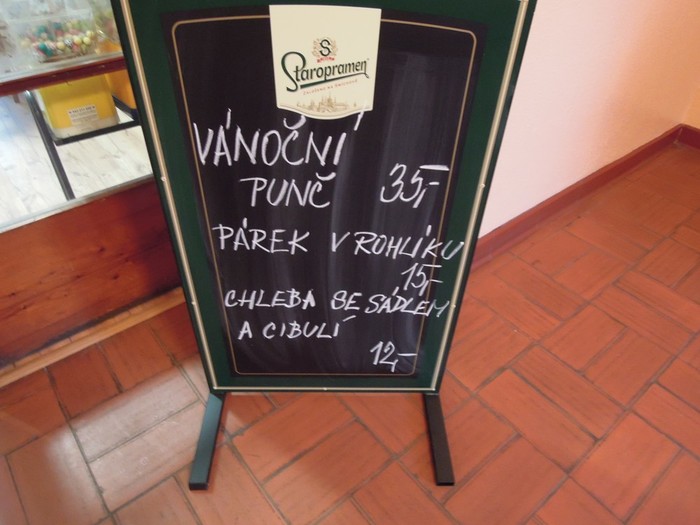 Staropramen
VÁNOČNÍ
PUNČ 35,-
PÁREK V ROHLÍKU
15,-
CHLEBA SE SÁDLEM
A CIBULÍ
12,-